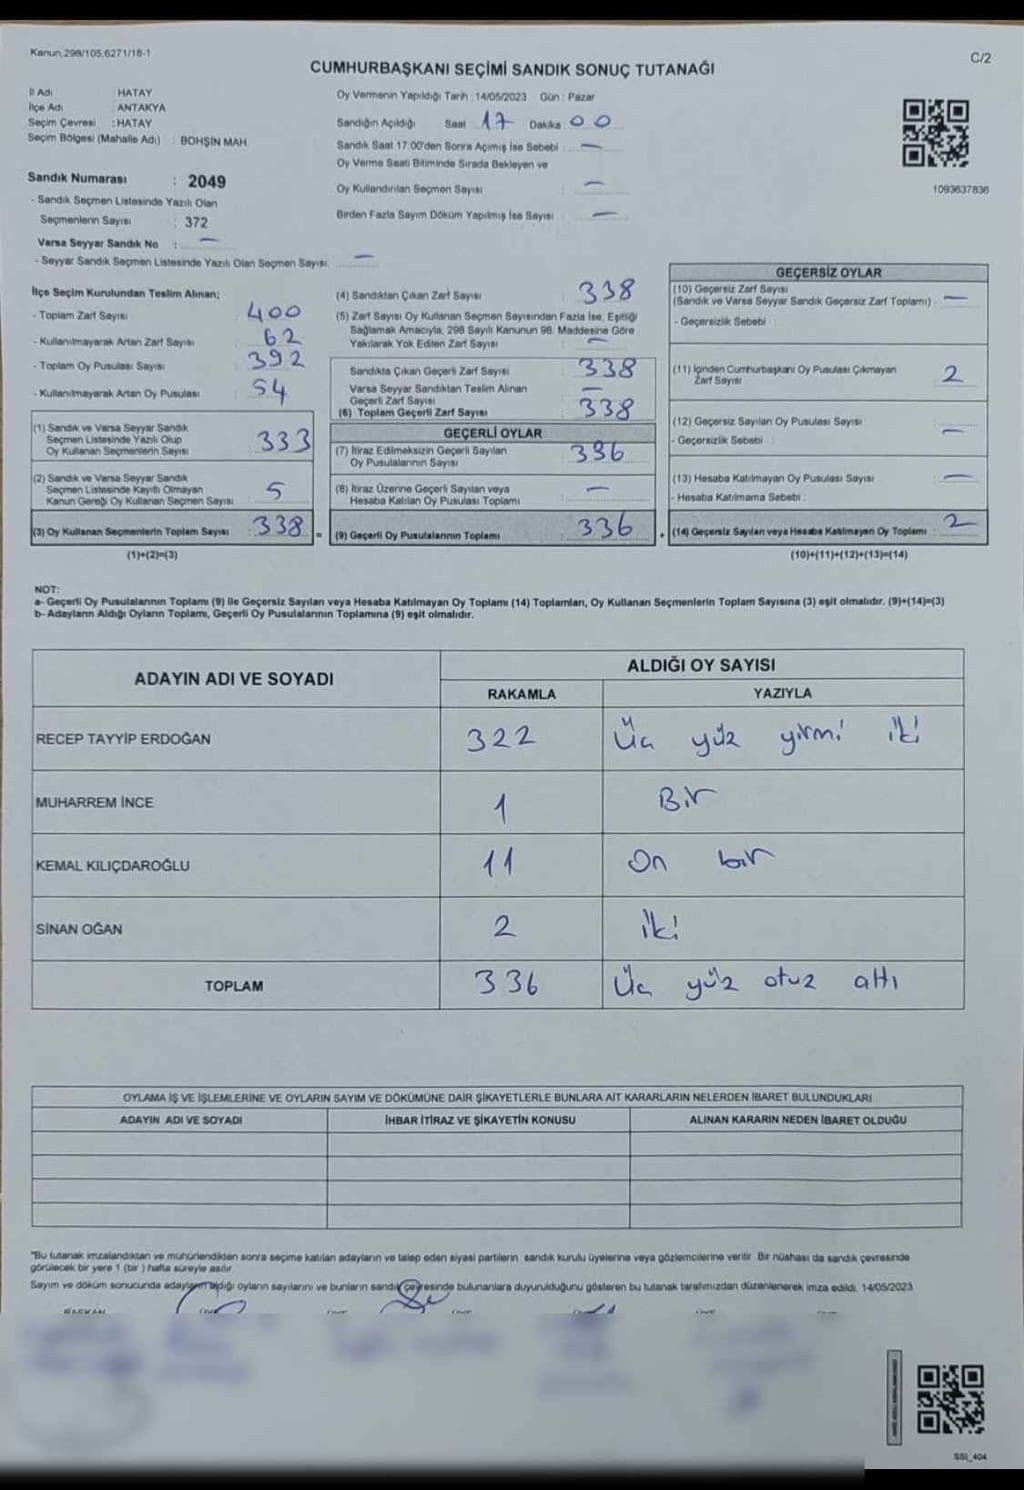 Kanun,298/105,6271/18-1
C/2
CUMHURBAŞKANI SEÇİMİ SANDIK SONUÇ TUTANAĞI
İl Adı HATAY
İlçe Adı : ANTAKYA
Seçim Çevresi : HATAY
Seçim Bölgesi (Mahalle Adı) : BOHŞİN MAH.
Sandık Numarası : 2049
- Sandık Seçmen Listesinde Yazılı Olan
Seçmenlerin Sayısı : 372
Varsa Seyyar Sandık No : —
- Seyyar Sandık Seçmen Listesinde Yazılı Olan Seçmen Sayısı: —
Oy Vermenin Yapıldığı Tarih : 14/05/2023 Gün : Pazar
Sandığın Açıldığı Saat 17 Dakika 00
Sandık Saat 17:00'den Sonra Açımış İse Sebebi : —
Oy Verme Saati Bitiminde Sırada Bekleyen ve
Oy Kullandırılan Seçmen Sayısı : —
Birden Fazla Sayım Döküm Yapılmış İse Sayısı : —
1093637836
İlçe Seçim Kurulundan Teslim Alınan;
- Toplam Zarf Sayısı : 400
- Kullanılmayarak Artan Zarf Sayısı : 62
- Toplam Oy Pusulası Sayısı : 392
- Kullanılmayarak Artan Oy Pusulası : 54
(1) Sandık ve Varsa Seyyar Sandık
Seçmen Listesinde Yazılı Olup
Oy Kullanan Seçmenlerin Sayısı : 333
(2) Sandık ve Varsa Seyyar Sandık
Seçmen Listesinde Kayıtlı Olmayan
Kanun Gereği Oy Kullanan Seçmen Sayısı : 5
(3) Oy Kullanan Seçmenlerin Toplam Sayısı : 338 =
(1)+(2)=(3)
(4) Sandıktan Çıkan Zarf Sayısı : 338
(5) Zarf Sayısı Oy Kullanan Seçmen Sayısından Fazla İse, Eşitliği
Sağlamak Amacıyla, 298 Sayılı Kanunun 98. Maddesine Göre
Yakılarak Yok Edilen Zarf Sayısı : —
Sandıkta Çıkan Geçerli Zarf Sayısı : 338
Varsa Seyyar Sandıktan Teslim Alınan
Geçerli Zarf Sayısı : —
(6) Toplam Geçerli Zarf Sayısı : 338
GEÇERLİ OYLAR
(7) İtiraz Edilmeksizin Geçerli Sayılan
Oy Pusulalarının Sayısı : 336
(8) İtiraz Üzerine Geçerli Sayılan veya
Hesaba Katılan Oy Pusulası Toplamı : —
(9) Geçerli Oy Pusulalarının Toplamı : 336 +
GEÇERSİZ OYLAR
(10) Geçersiz Zarf Sayısı
(Sandık ve Varsa Seyyar Sandık Geçersiz Zarf Toplamı) : —
- Geçersizlik Sebebi :
(11) İçinden Cumhurbaşkanı Oy Pusulası Çıkmayan
Zarf Sayısı : 2
(12) Geçersiz Sayılan Oy Pusulası Sayısı : —
- Geçersizlik Sebebi :
(13) Hesaba Katılmayan Oy Pusulası Sayısı : —
- Hesaba Katılmama Sebebi :
(14) Geçersiz Sayılan veya Hesaba Katılmayan Oy Toplamı : 2
(10)+(11)+(12)+(13)=(14)
NOT:
a- Geçerli Oy Pusulalarının Toplamı (9) ile Geçersiz Sayılan veya Hesaba Katılmayan Oy Toplamı (14) Toplamları, Oy Kullanan Seçmenlerin Toplam Sayısına (3) eşit olmalıdır. (9)+(14)=(3)
b- Adayların Aldığı Oyların Toplamı, Geçerli Oy Pusulalarının Toplamına (9) eşit olmalıdır.
ADAYIN ADI VE SOYADI
ALDIĞI OY SAYISI
RAKAMLA YAZIYLA
RECEP TAYYİP ERDOĞAN 322 Üç yüz yirmi iki
MUHARREM İNCE 1 Bir
KEMAL KILIÇDAROĞLU 11 On bir
SİNAN OĞAN 2 İki
TOPLAM 336 Üç yüz otuz altı
OYLAMA İŞ VE İŞLEMLERİNE VE OYLARIN SAYIM VE DÖKÜMÜNE DAİR ŞİKAYETLERLE BUNLARA AİT KARARLARIN NELERDEN İBARET BULUNDUKLARI
ADAYIN ADI VE SOYADI İHBAR İTİRAZ VE ŞİKAYETİN KONUSU ALINAN KARARIN NEDEN İBARET OLDUĞU
"Bu tutanak imzalandıktan ve mühürlendikten sonra seçime katılan adayların ve talep eden siyasi partilerin sandık kurulu üyelerine veya gözlemcilerine verilir. Bir nüshası da sandık çevresinde
görülecek bir yere 1 (bir ) hafta süreyle asılır.
Sayım ve döküm sonucunda adayların aldığı oyların sayılarını ve bunların sandık çevresinde bulunanlara duyurulduğunu gösteren bu tutanak tarafımızdan düzenlenerek imza edildi. 14/05/2023
BAŞKAN
SSI_404